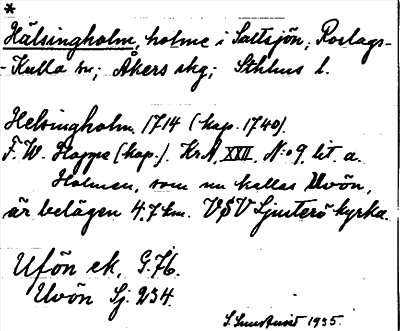 *
Hälsingholm, holme i Saltsjön, Roslags-
-Kulla sn; Åkers skg; Sthlms l.
Helsingholm. 1714 (kop. 1740).
F. W. Hoppe (kop.). KrA, XXII, N:o 9, lit a.
Holmen, som nu kallas Uvön,
är belägen 4,7 km. VSV Ljusterö kyrka.
Ufön ek, G.76.
Uvön Sj. 234.
1935.